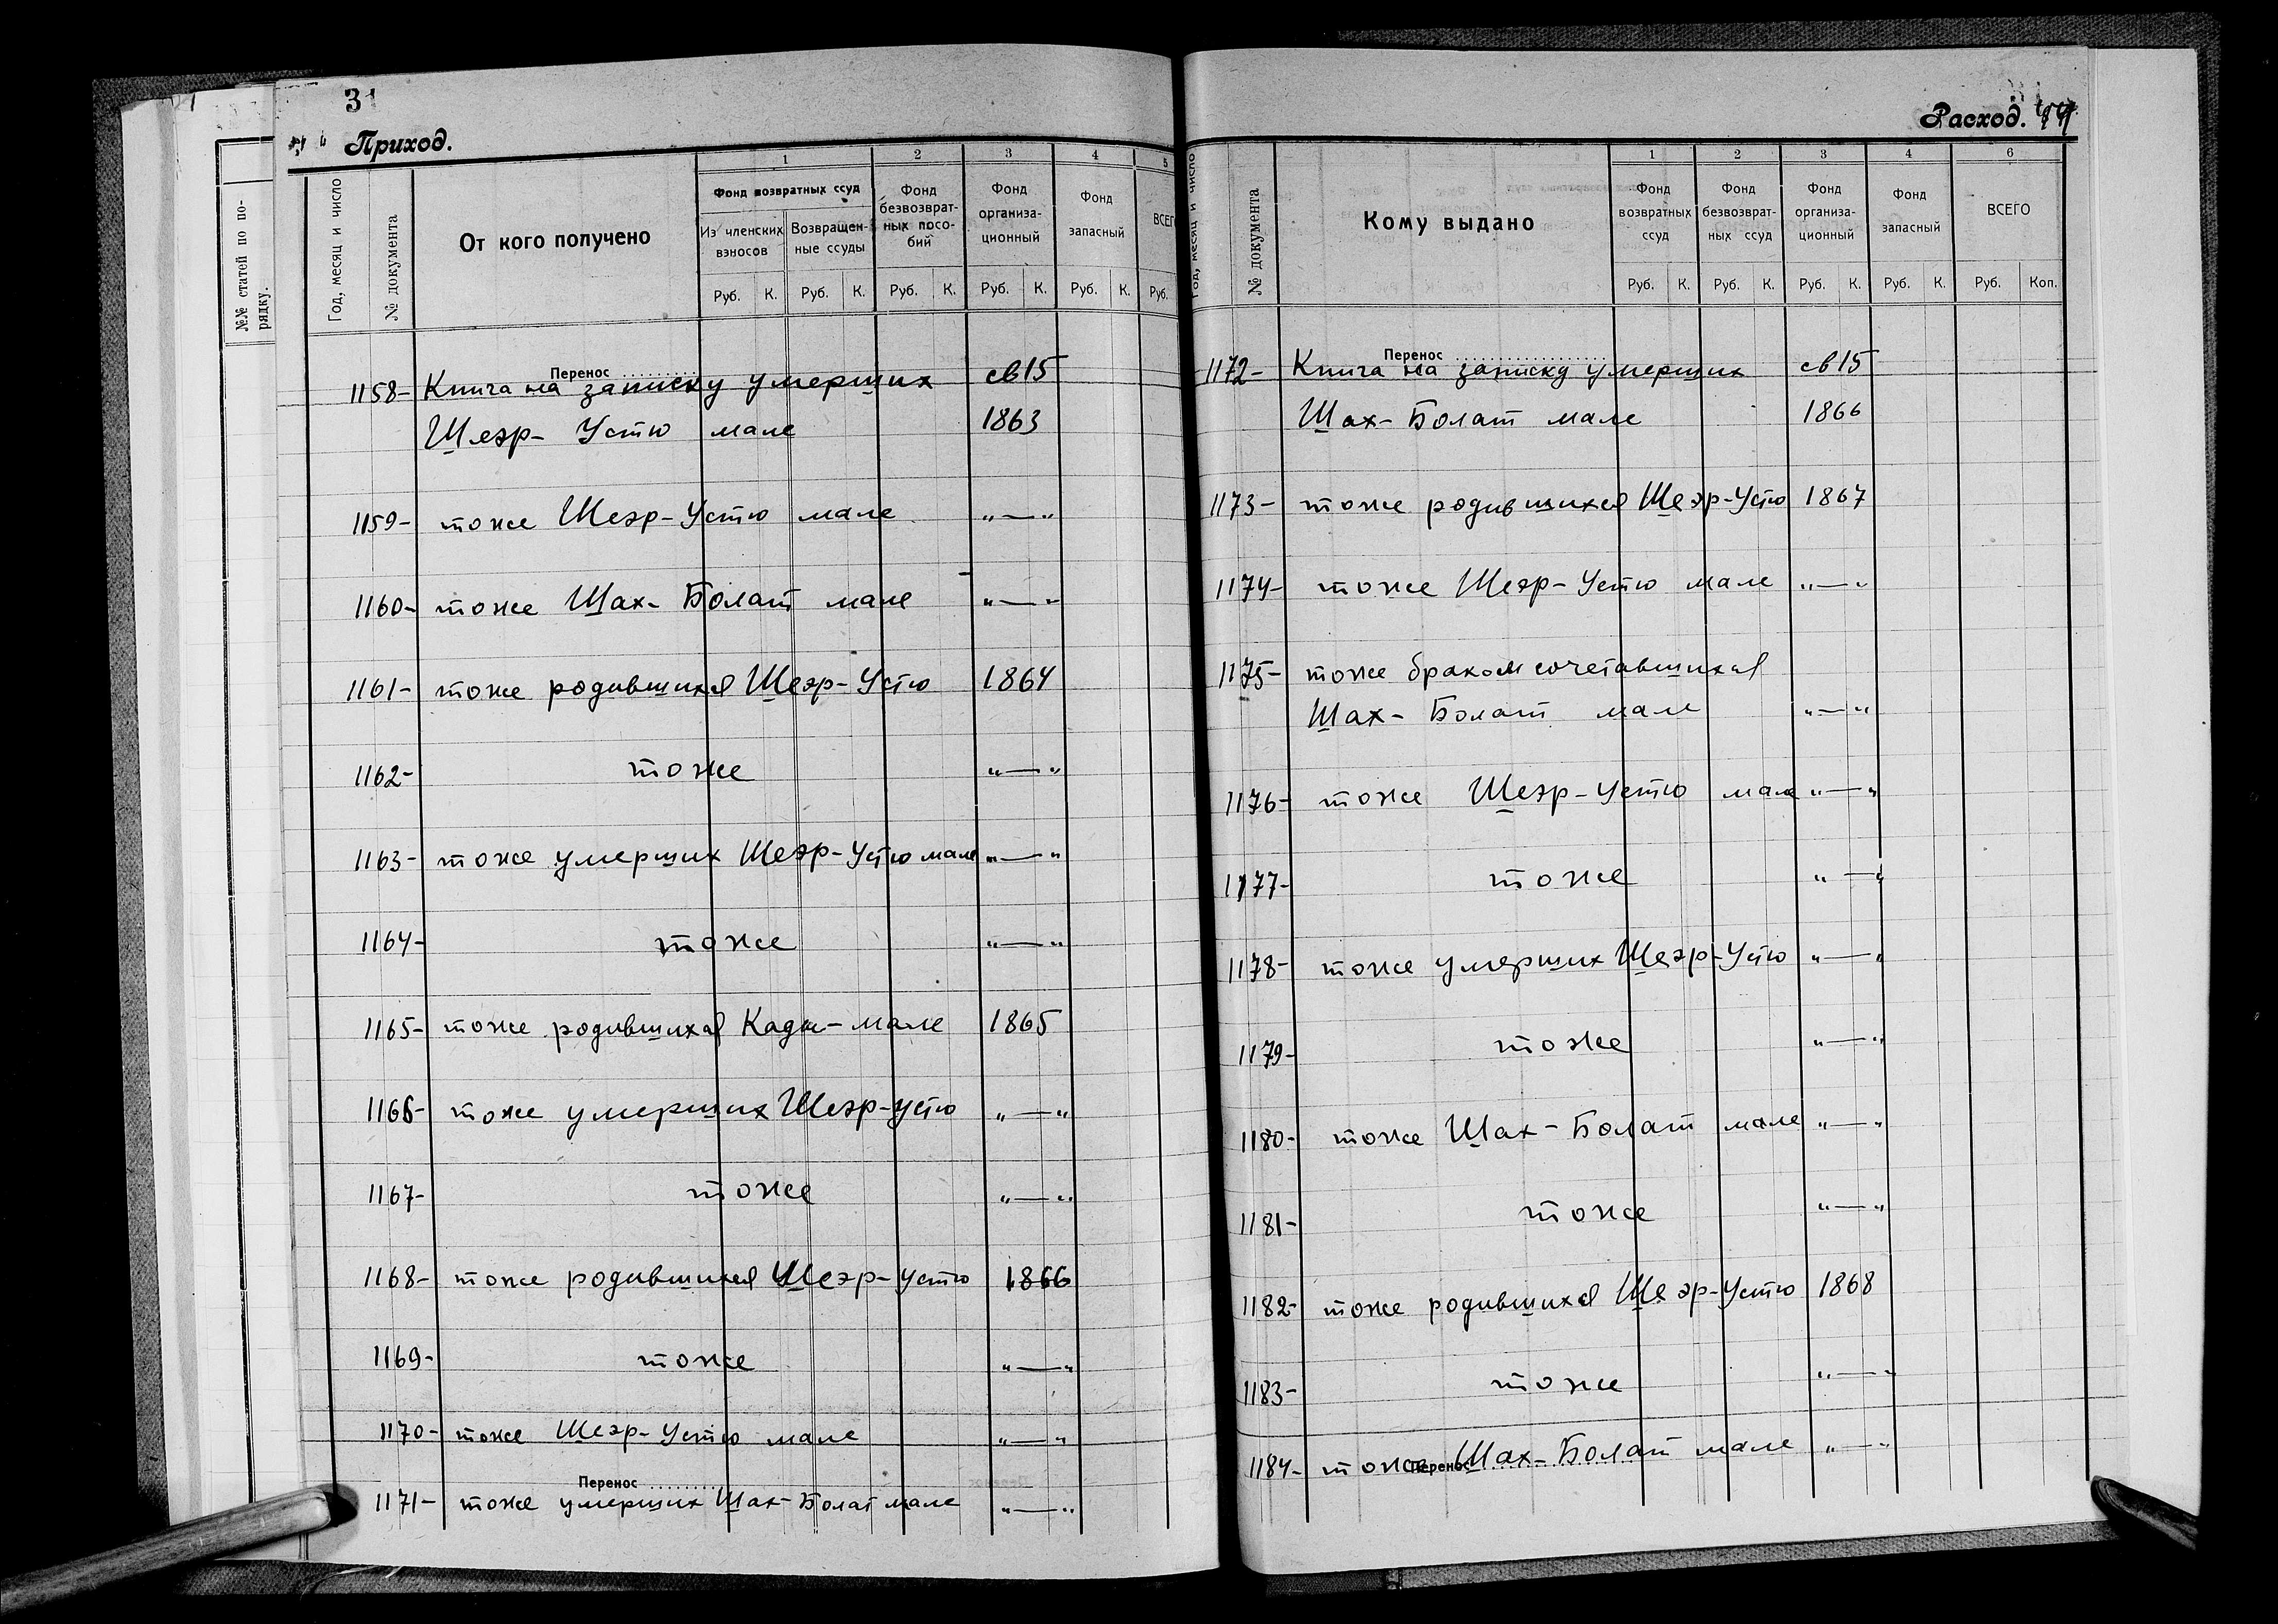 31
Приход.
№№ статей по по-
рядку.
Год, месяц и число
№ документа
От кого получено
1
2
3
4
5
Фонд возвратных ссуд
Из членских взносов
Возвращен-ные ссуды
Фонд безвозврат-ных посо-бий
Фонд организа-ционный
Фонд запасный
ВСЕГ
Руб. К. Руб. К. Руб. К. Руб. К. Руб. К. Руб.
Перенос
1158- Книга на записку умерших св15
Шеэр-Устю мале 1863
1159- тоже Шеэр-Устю мале „—„
1160- тоже Шах-Болат мале „—„
1161- тоже родившихся Шеэр-Устю 1864
1162- тоже „—„
1163- тоже умерших Шеэр-Устю мале „—„
1164- тоже „—„
1165- тоже родившихся Кади-мале 1865
1166- тоже умерших Шеэр-устю „—„
1167- тоже „—„
1168- тоже родившихся Шеэр-устю 1866
1169- тоже „—„
1170- тоже Шеэр-Устю мале „—„
Перенос
1171- тоже умерших Шах-Болат мале „—„
Расход.
Год, месяц и число
№ документа
Кому выдано
1
2
3
4
6
Фонд возвратных ссуд
Фонд безвозврат-ных ссуд
Фонд организа-ционный
Фонд запасный
ВСЕГО
Руб. К. Руб. К. Руб. К. Руб. К. Руб. Коп.
Перенос
1172- Книга на записку умерших св15
Шах-Болат мале 1866
1173- тоже родившихся Шеэр-Устю 1867
1174- тоже Шеэр-Устю мале „—„
1175- тоже бракомсочетавшихся
Шах-Болат мале „—„
1176- тоже Шеэр-Устю мале „—„
1177- тоже „—„
1178- тоже умерших Шеэр-Устю „—„
1179- тоже „—„
1180- тоже Шах-Болат мале „—„
1181- тоже „—„
1182- тоже родившихся Шеэр-Устю 1868
1183- тоже „—„
Перенос
1184- тоже Шах-Болат мале „—„